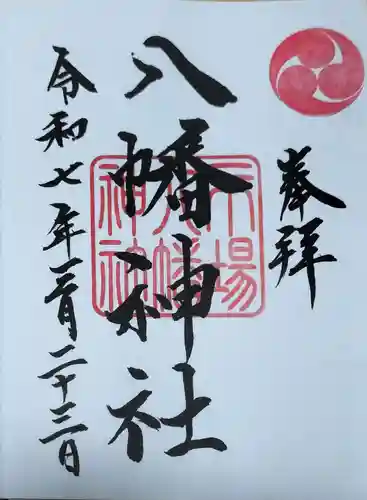 奉拝
八幡神社
令和七年三月二十三日
場
八幡
神